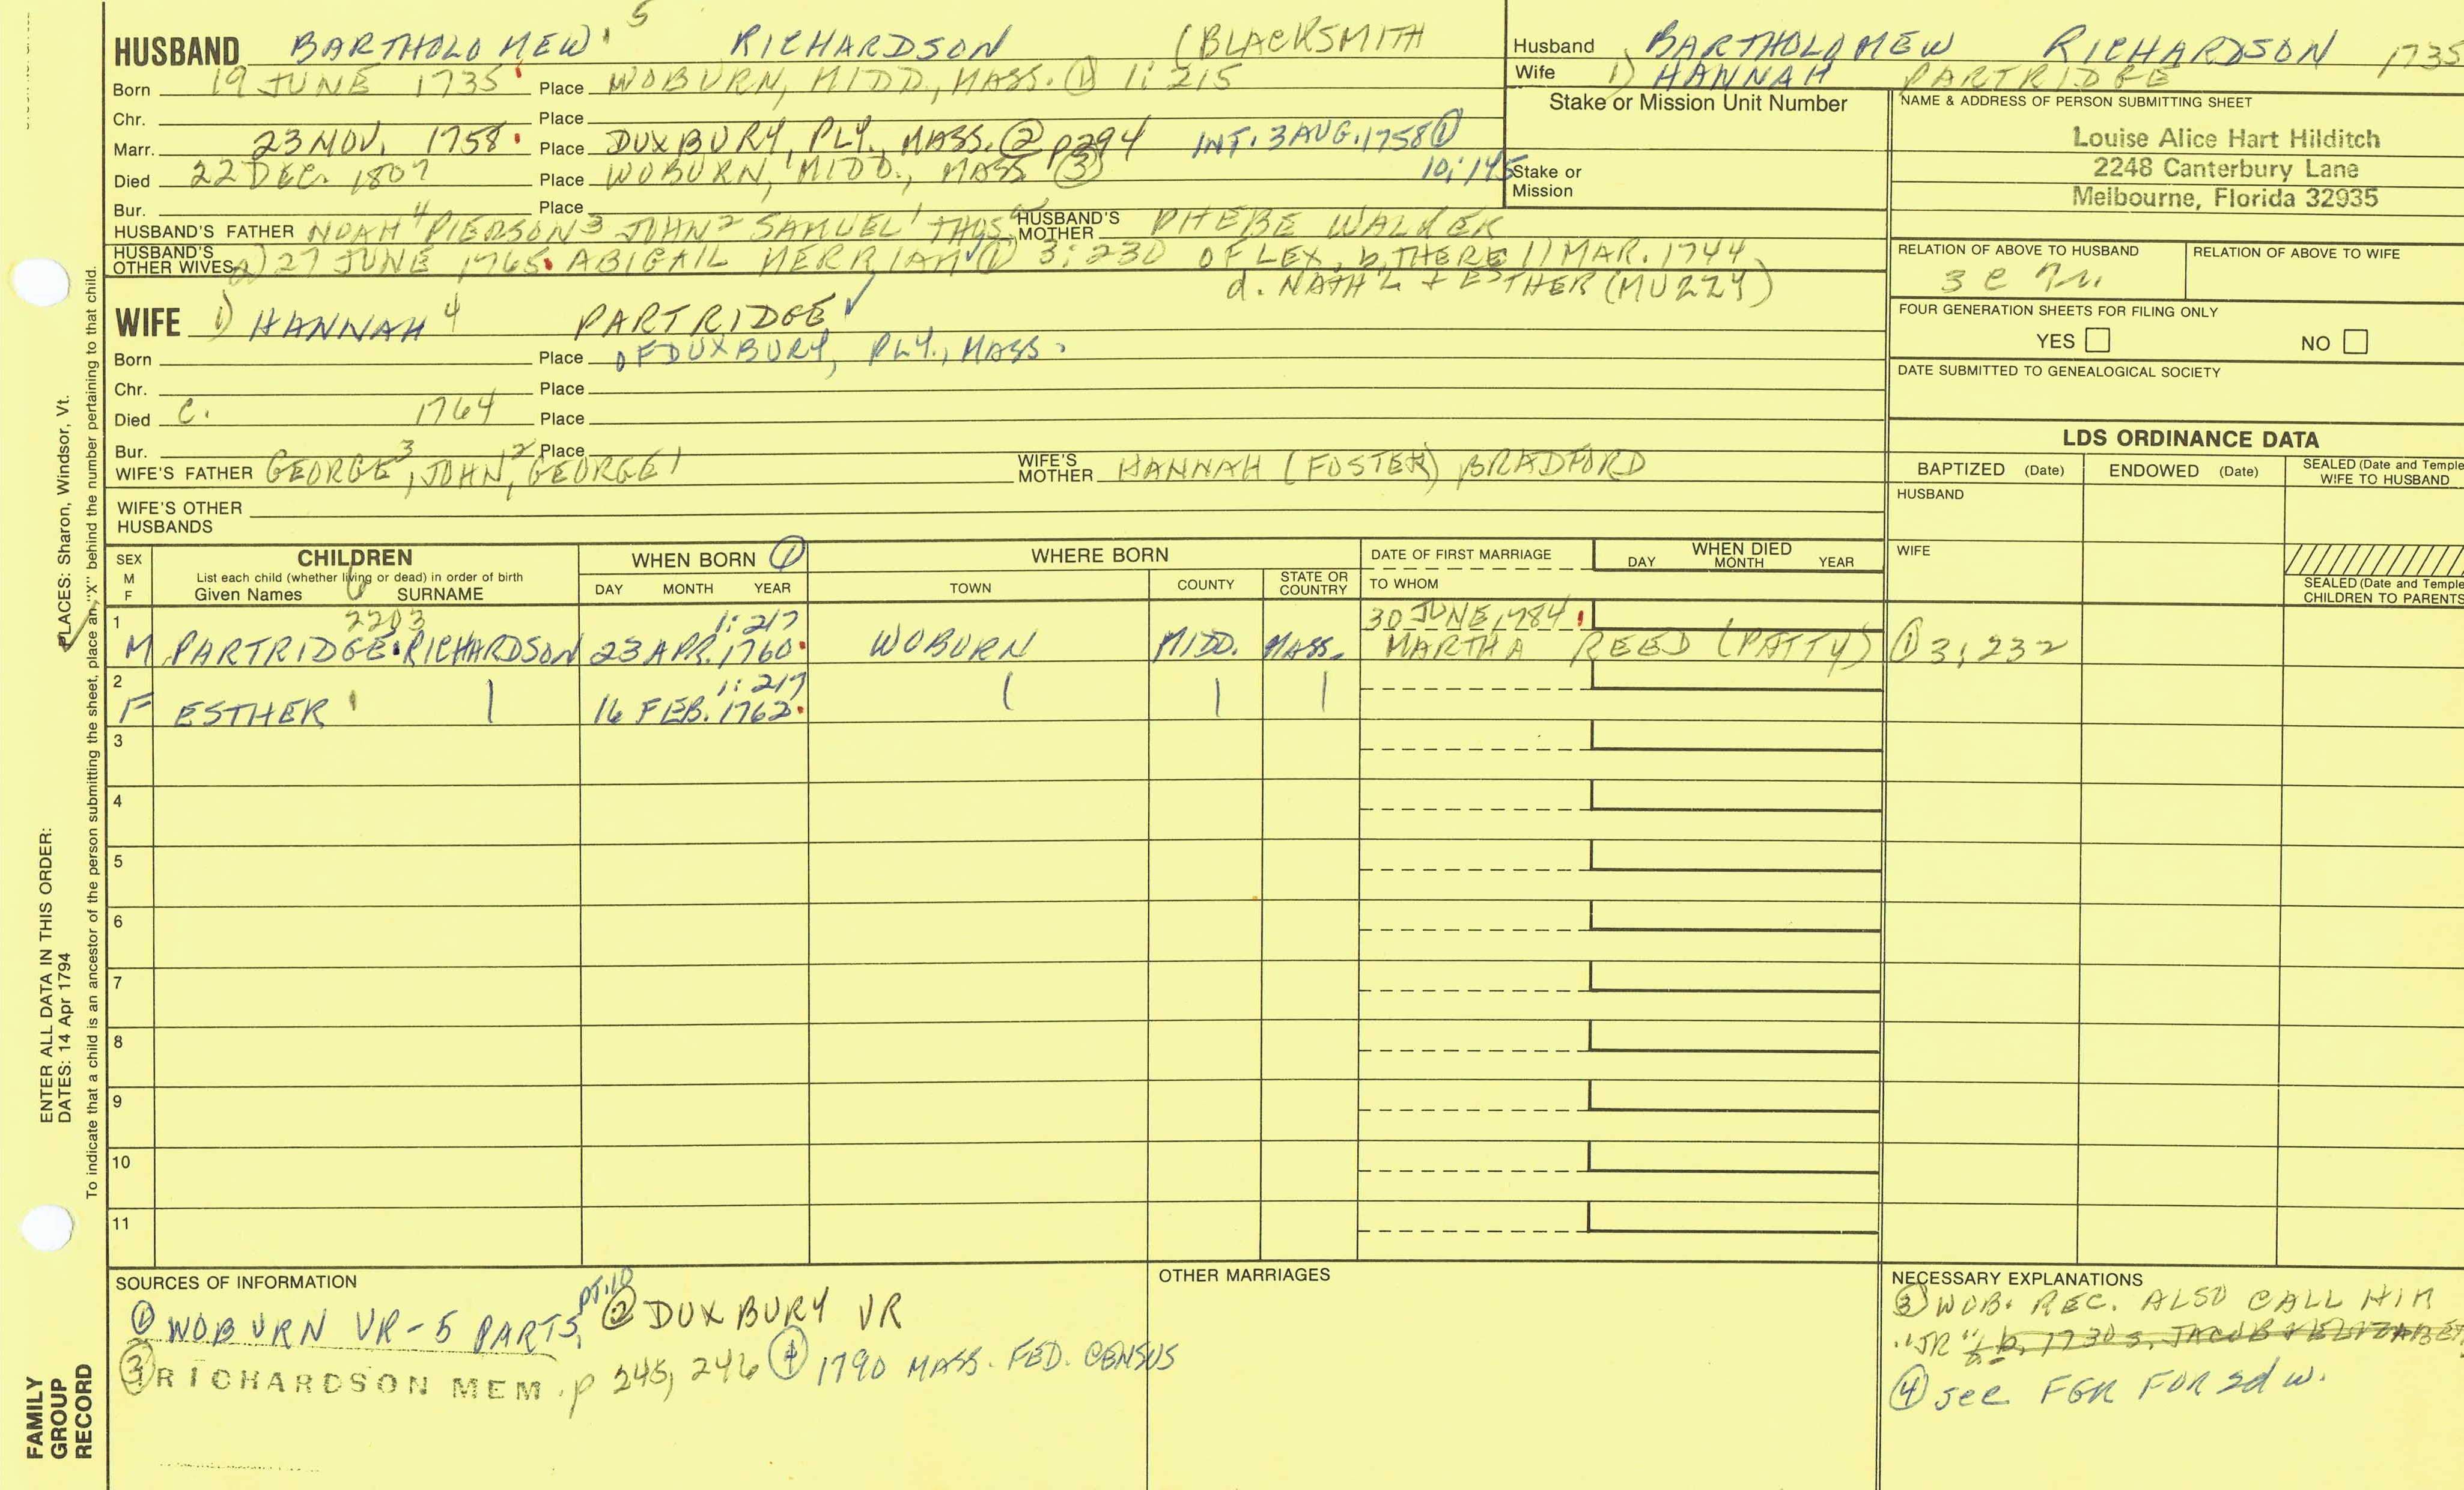 5
HUSBAND BARTHOLOMEW RICHARDSON (BLACKSMITH
Born 19 JUNE 1735 Place WOBURN, MIDD., MASS. ① 1:215
Chr. Place
Marr. 23 NOV. 1758 Place DUXBURY, PLY. MASS. ② p294 INT. 3 AUG. 1758 ①
10:145
Died 22 DEC. 1807 Place WOBURN, MIDD., MASS ③
Bur. Place
HUSBAND'S FATHER NOAH 4 PIERSON 3 JOHN 2 SAMUEL 1 THOS. HUSBAND'S MOTHER PHEBE WALKER
HUSBAND'S OTHER WIVES 2) 27 JUNE 1765 ABIGAIL MERRIAM ① 3:230 OF LEX, b. THERE 11 MAR. 1744
d. NATH'L + ESTHER (MUZZY)
WIFE 1) HANNAH 4 PARTRIDGE ✓
Born Place OF DUXBURY, PLY., MASS.
Chr. Place
Died C. 1764 Place
Bur. Place
WIFE'S FATHER GEORGE 3, JOHN, 2 GEORGE 1 WIFE'S MOTHER HANNAH (FOSTER) BRADFORD
WIFE'S OTHER HUSBANDS
Husband BARTHOLOMEW RICHARDSON 1735
Wife 1) HANNAH PARTRIDGE
Stake or Mission Unit Number
Stake or
Mission
NAME & ADDRESS OF PERSON SUBMITTING SHEET
Louise Alice Hart Hilditch
2248 Canterbury Lane
Melbourne, Florida 32935
RELATION OF ABOVE TO HUSBAND RELATION OF ABOVE TO WIFE
FOUR GENERATION SHEETS FOR FILING ONLY
YES NO
DATE SUBMITTED TO GENEALOGICAL SOCIETY
LDS ORDINANCE DATA
BAPTIZED (Date) ENDOWED (Date) SEALED (Date and Temple
WIFE TO HUSBAND
HUSBAND
WIFE
SEALED (Date and Temple
CHILDREN TO PARENTS
SEX M F CHILDREN WHEN BORN ① WHERE BORN DATE OF FIRST MARRIAGE WHEN DIED
List each child (whether living or dead) in order of birth
Given Names SURNAME DAY MONTH YEAR TOWN COUNTY STATE OR COUNTRY TO WHOM DAY MONTH YEAR
1 2203 1:217 30 JUNE 1784
M PARTRIDGE RICHARDSON 23 APR. 1760 WOBURN MIDD. MASS. MARTHA REED (PATTY) ① 3:232
2 1:217
F ESTHER 16 FEB. 1762
3
4
5
6
7
8
9
10
11
SOURCES OF INFORMATION
① WOBURN VR-5 PARTS, PT.10 ② DUXBURY VR
③ RICHARDSON MEM. p 245, 246 ④ 1790 MASS. FED. CENSUS
OTHER MARRIAGES
NECESSARY EXPLANATIONS
③ WOB. REC. ALSO CALL HIM
"JR" b. 1730 s. JACOB + ELIZABET
④ see FGR FOR 2d w.
PLACES: Sharon, Windsor, Vt.
ENTER ALL DATA IN THIS ORDER:
DATES: 14 Apr 1794
To indicate that a child is an ancestor of the person submitting the sheet, place an "X" behind the number pertaining to that child.
FAMILY
GROUP
RECORD